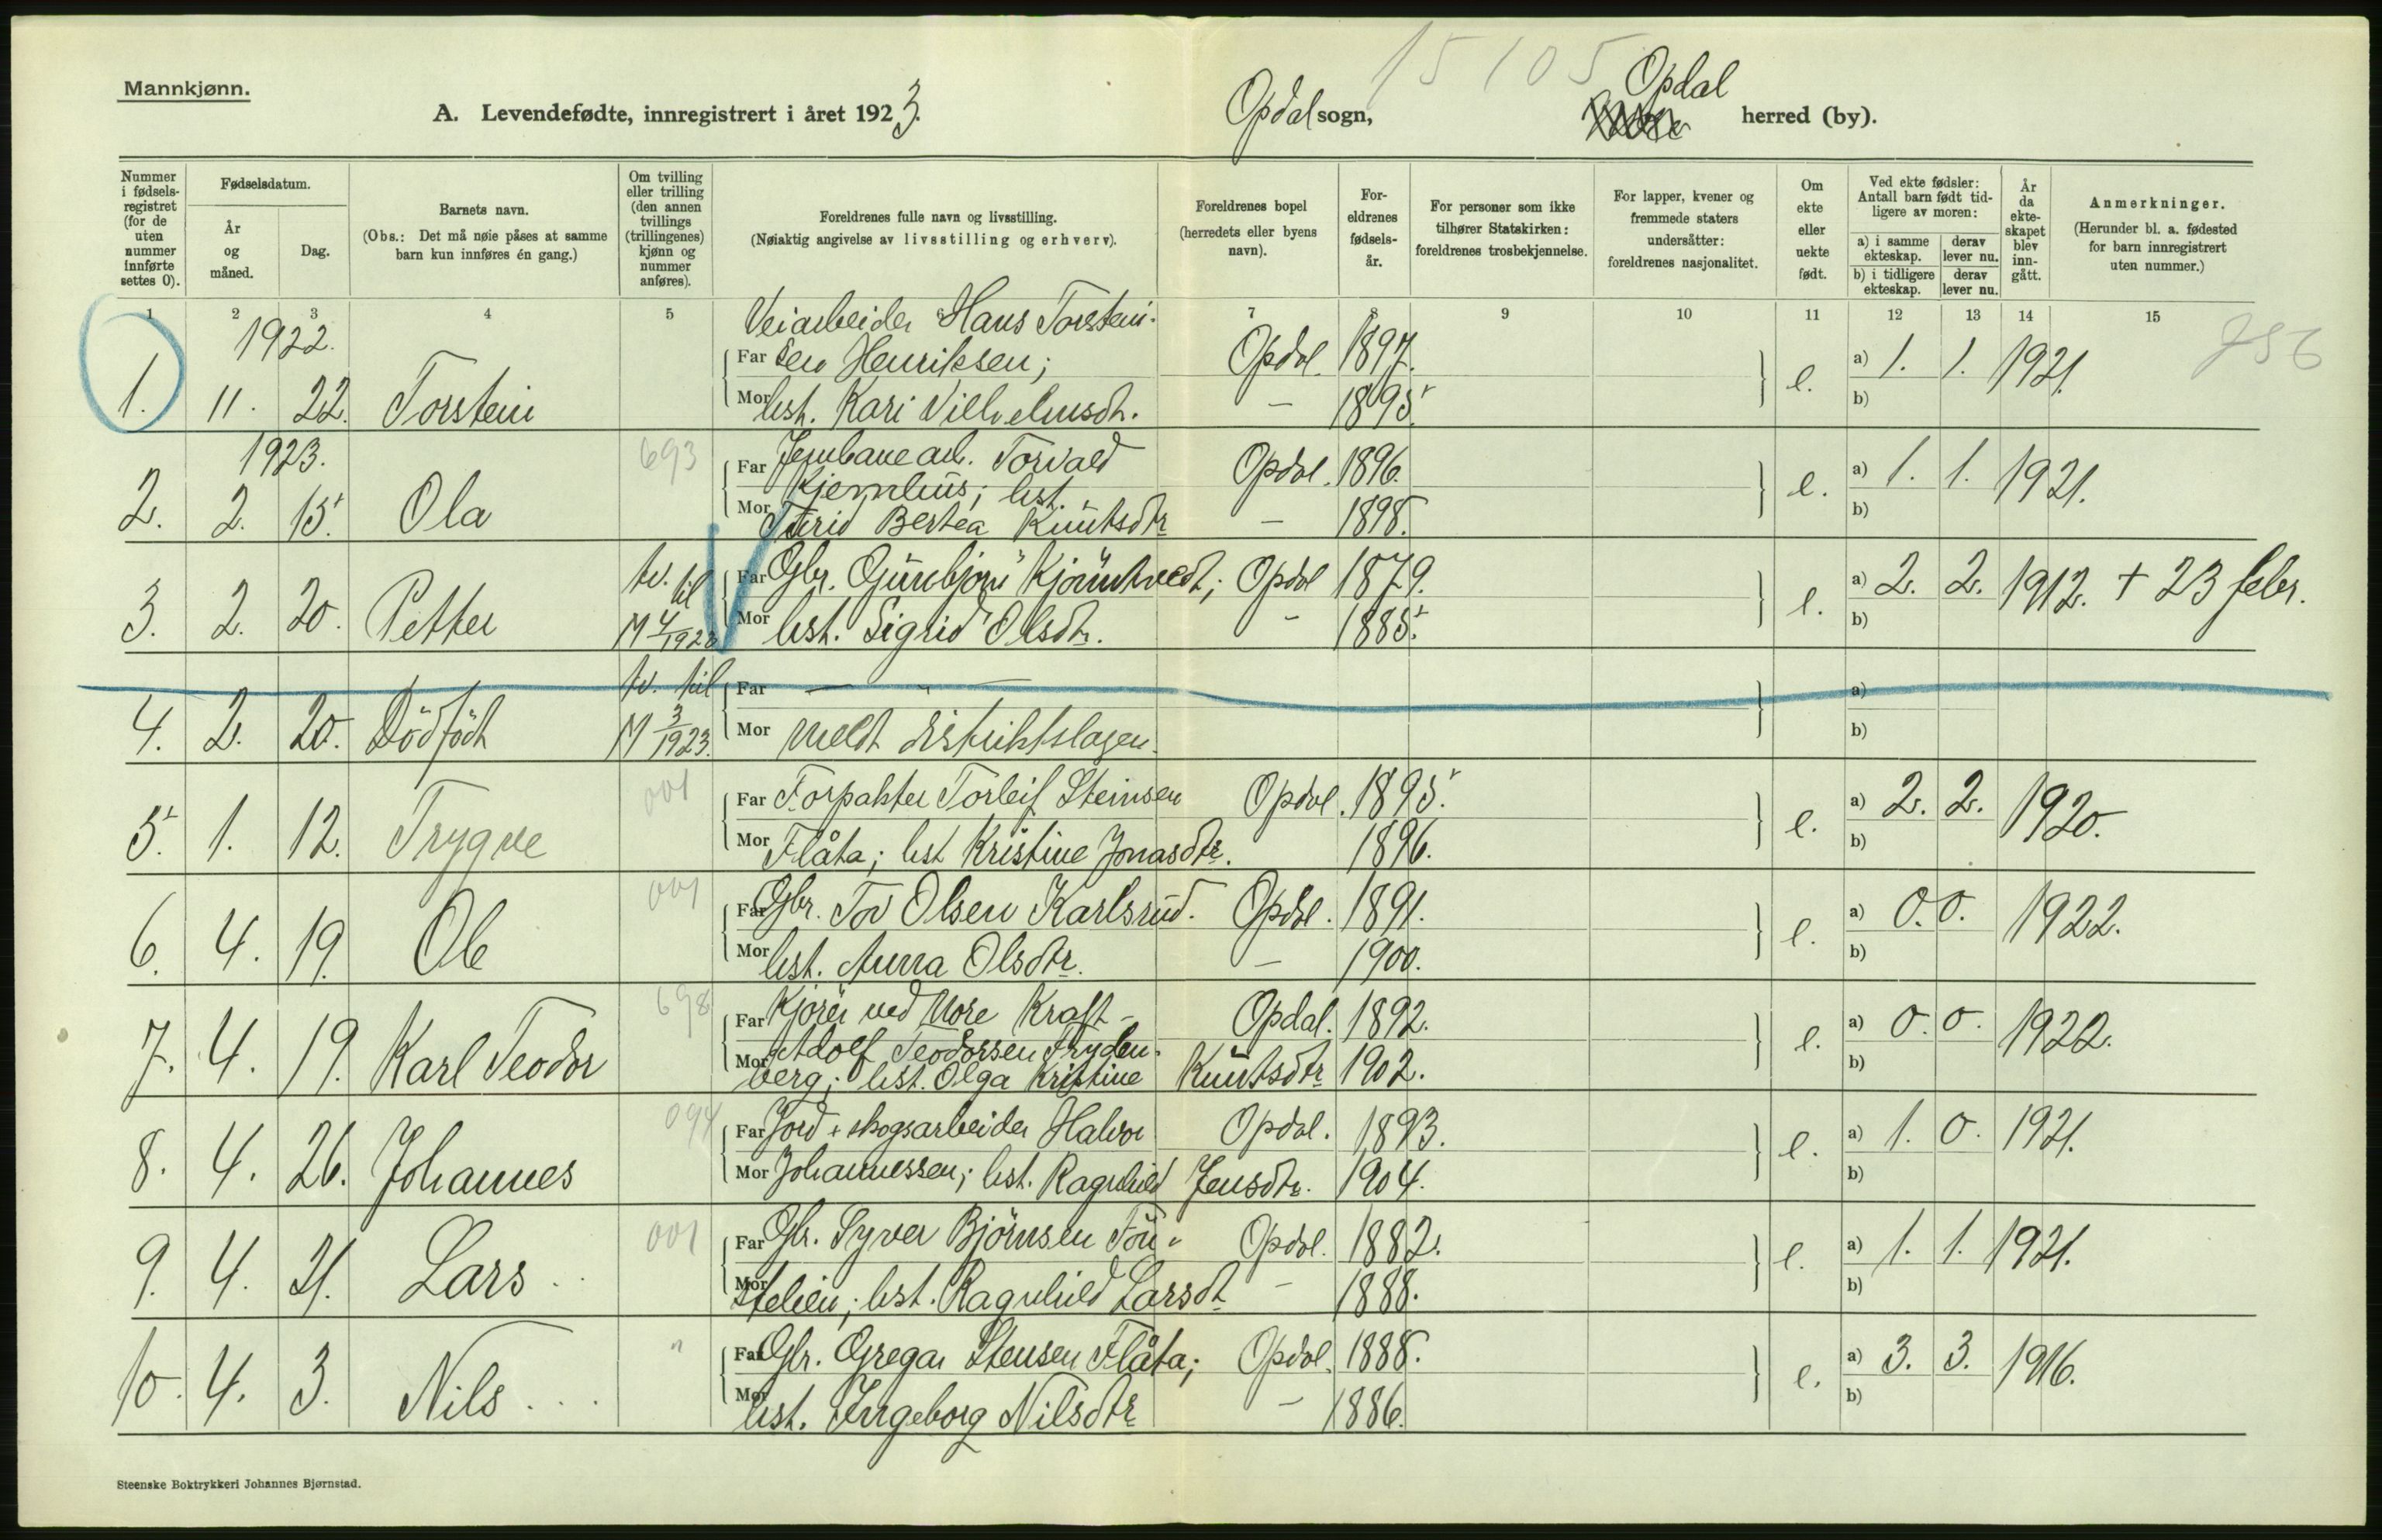 15105
Mannkjønn.
A. Levendefødte, innregistrert i året 1923.
Opdal sogn,
Opdal
herred (by).
Nummer i fødsels-registret (for de uten nummer innførte settes 0).
Fødselsdatum.
År og måned.
Dag.
Barnets navn.
(Obs.: Det må nøie påses at samme barn kun innføres én gang.)
Om tvilling eller trilling (den annen tvillings (trillingenes) kjønn og nummer anføres).
Foreldrenes fulle navn og livsstilling.
(Nøiaktig angivelse av livsstilling og erhverv).
Foreldrenes bopel (herredets eller byens navn).
For-eldrenes fødsels-år.
For personer som ikke tilhører Statskirken: foreldrenes trosbekjennelse.
For lapper, kvener og fremmede staters undersåtter: foreldrenes nasjonalitet.
Om ekte eller uekte født.
Ved ekte fødsler: Antall barn født tid-ligere av moren:
a) i samme ekteskap.
derav lever nu.
b) i tidligere ekteskap.
derav lever nu.
År da ekte-skapet blev inn-gått.
Anmerkninger.
(Herunder bl. a. fødested for barn innregistrert uten nummer.)
1 2 3 4 5 6 7 8 9 10 11 12 13 14 15
1922.
Veiarbeider Hans Torstein-
1. 11. 22. Torstein Far sen Henriksen; Opdal. 1897. e. a) 1. 1. 1921.
Mor hst. Kari Vilhelmsdtr. — 1895. b)
1923.
693
2. 2. 15. Ola Far Jernbanearb. Torvald Opdal. 1896. e. a) 1. 1. 1921.
Kjemhus; hst.
Mor Turid Bertea Knutsdtr — 1898. b)
3. 2. 20. Petter tv. til M 4/1923 Far Gbr. Gunbjørn Kjøntvedt; Opdal 1879. e. a) 2. 2. 1912. + 23 febr.
Mor hst. Sigrid Olsdtr. - 1885. b)
4. 2. 20. Dödfödt tv. til M 3/1923. Far — " — a)
Mor meldt distriktslægen. b)
001
5. 1. 12. Trygve Far Forpakter Torleif Steinsen Opdal. 1895. e. a) 2. 2. 1920.
Mor Flåta; hst Kristine Jonasdtr. 1896. b)
001
6. 4. 19. Ole Far Gbr. Tov Olsen Karlsrud. Opdal. 1891. e. a) 0. 0. 1922.
Mor hst. Anna Olsdtr. — 1900. b)
698
7. 4. 19. Karl Teodor Far Kjører ved Nore Kraft- Opdal. 1892. e. a) 0. 0. 1922.
Adolf Teodorsen Fryden-
Mor berg; hst. Olga Kristine Knutsdtr 1902. b)
094
8. 4. 26. Johannes Far Jord + skogsarbeider Halvor Opdal. 1893. e. a) 1. 0. 1921.
Mor Johannessen; hst. Ragnhild Jensdtr. 1904. b)
001
9. 4. 21. Lars Far Gbr. Syver Björnsen Opdal. 1882. e. a) 1. 1. 1921.
Mor hst. Ragnhild Larsdt - 1888. b)
"
10. 4. 3. Nils Far Gbr. Gregar Stensen Flåta; Opdal. 1888. e. a) 3. 3. 1916.
Mor hst. Ingeborg Nilsdtr — 1886. b)
Steenske Boktrykkeri Johannes Bjørnstad.